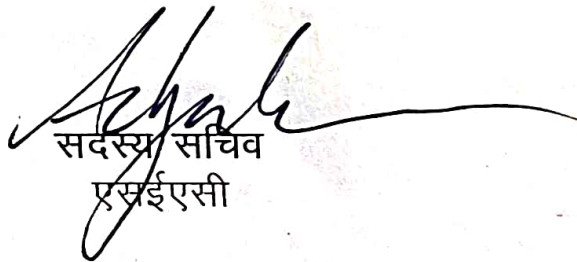 सदस्य सचिव
एसईएसी